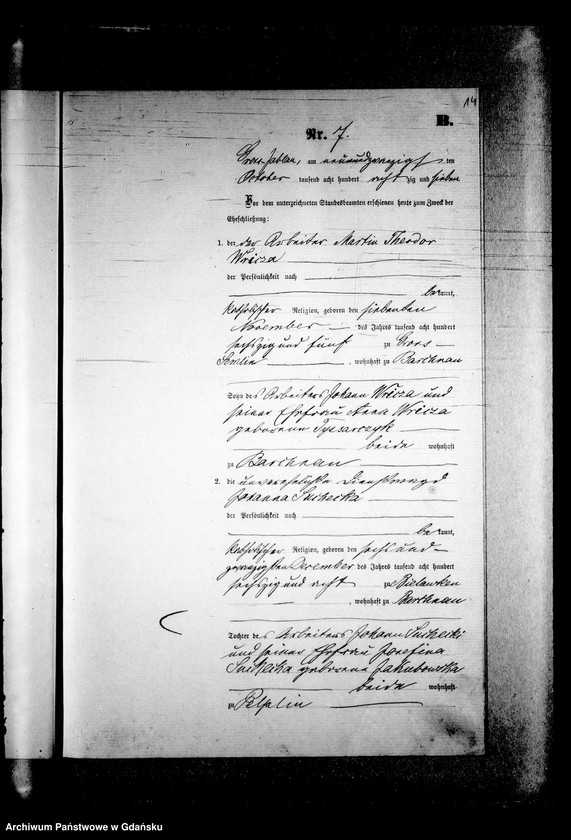 14
B.
Nr. 7.
Gross Jablau, am neunundzwanzigsten
October tausend acht hundert achtzig und sieben
Vor dem unterzeichneten Standesbeamten erschienen heute zum Zweck der
Eheschließung:
1. der Arbeiter Martin Theodor
Wrisza
der Persönlichkeit nach
bekannt,
katholischer Religion, geboren den siebenten
November des Jahres tausend acht hundert
sechszig und fünf zu Gross
Semlin, wohnhaft zu Barchnau
Sohn des Arbeiters Johann Wrisza und
seiner Ehefrau Anna Wrisza
geborenen
beide wohnhaft
zu Barchnau
2. die unverehelichte Dienstmagd
Johanna Suchecka
der Persönlichkeit nach
bekannt,
katholischer Religion, geboren den sechsund-
zwanzigsten December des Jahres tausend acht hundert
sechszig und acht zu Bielawken
, wohnhaft zu Barchnau
Tochter des Arbeiters Johann Suchecki
und seiner Ehefrau Josefina
Suchecka geborene Jakubowska
beide wohnhaft
zu Pelplin
Archiwum Państwowe w Gdańsku